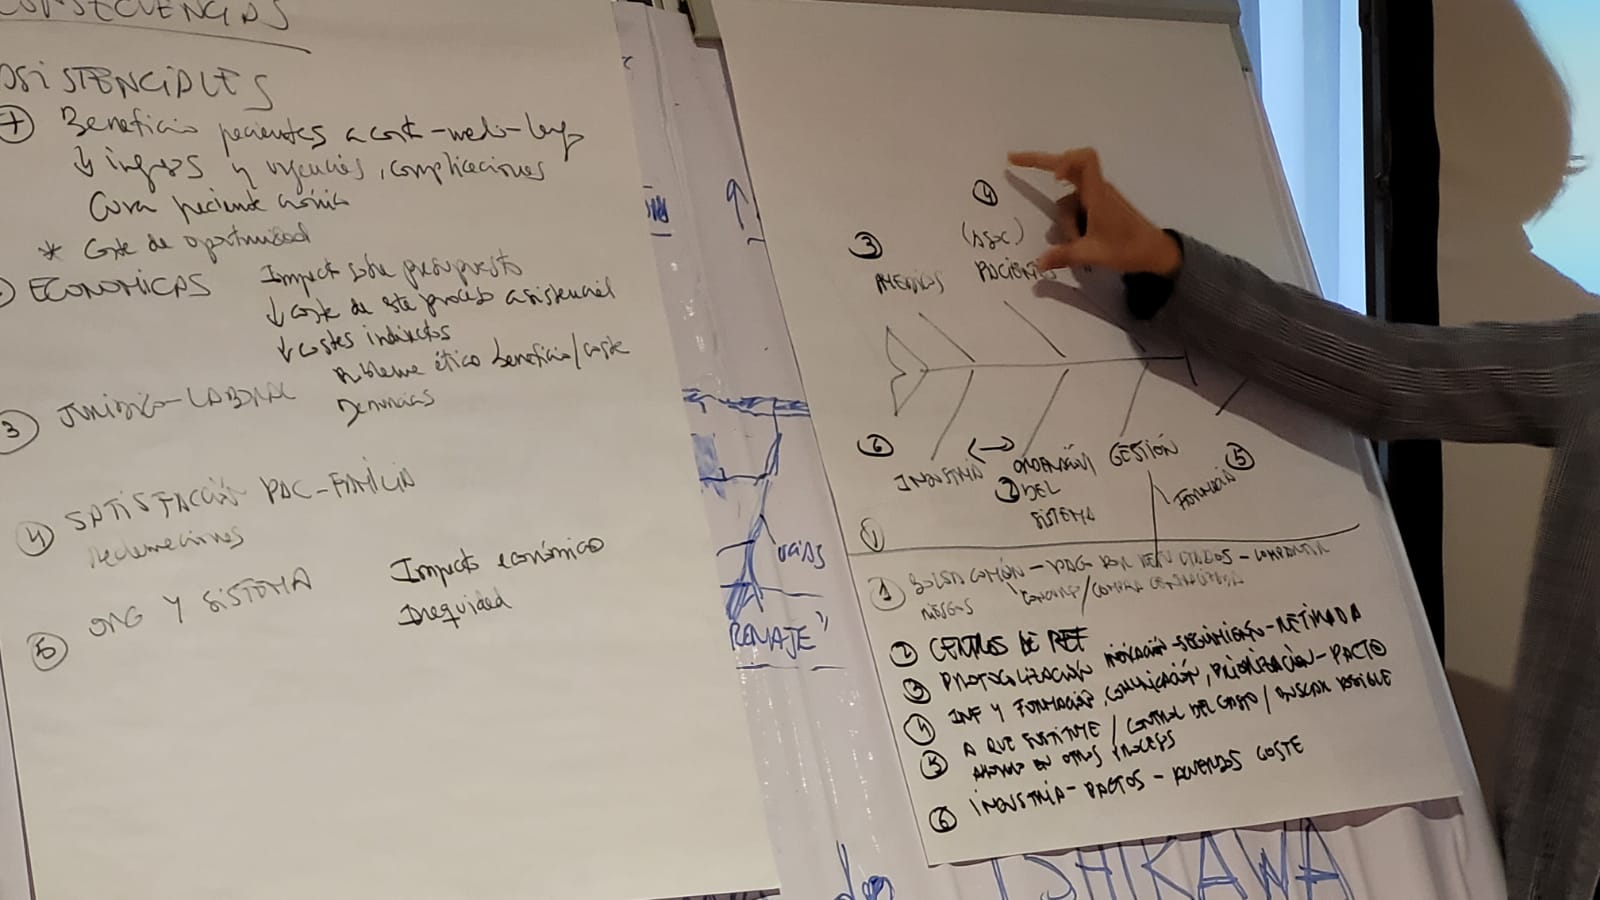 CONSECUENCIAS
ASISTENCIALES
+ Beneficio pacientes a corto-medio-largo
↓ ingresos y urgencias, complicaciones
Cura paciente crónico
* Coste de oportunidad
ECONOMICAS Impacto sobre presupuesto
↓ coste de este proceso asistencial
↓ costes indirectos
Problema ético beneficio/coste
3 JURIDICO-LABORAL Denuncias
4 SATISFACCIÓN PAC-FAMILIA
Reclamaciones
5 ORG Y SISTEMA Impacto económico
Inequidad
UCIAS
REMAJE"
3
MEDICOS
4
PACIENTES
6
INDUSTRIA
↔
2 ORDENACIÓN
DEL
SISTEMA
GESTIÓN
5
FORMACIÓN
1
1 BOLSA COMÚN - PAGO POR RESULTADOS - COMPARTIR
RIESGOS
2 CENTROS DE REF
3 PROTOCOLIZACIÓN INDICACIÓN - SEGUIMIENTO - RETIRADA
4 INF Y FORMACIÓN, COMUNICACIÓN, PRIORIZACIÓN - PACTO
5 A QUE SUSTITUYE / CONTROL DEL GASTO / BUSCAR POSIBLE
AHORRO EN OTROS PROCESOS
6 INDUSTRIA - PACTOS - ACUERDOS COSTE
ISHIKAWA